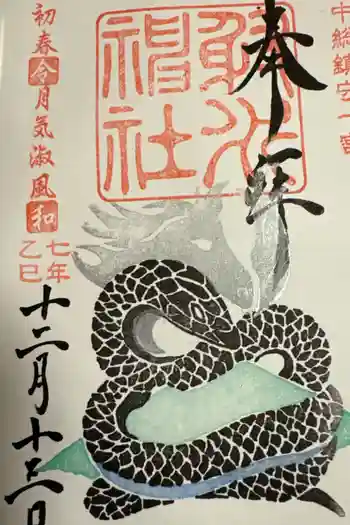 中総鎮守一宮
奉拝
駒形
神社
初春令月気淑風和
七年
乙巳
十二月十三日